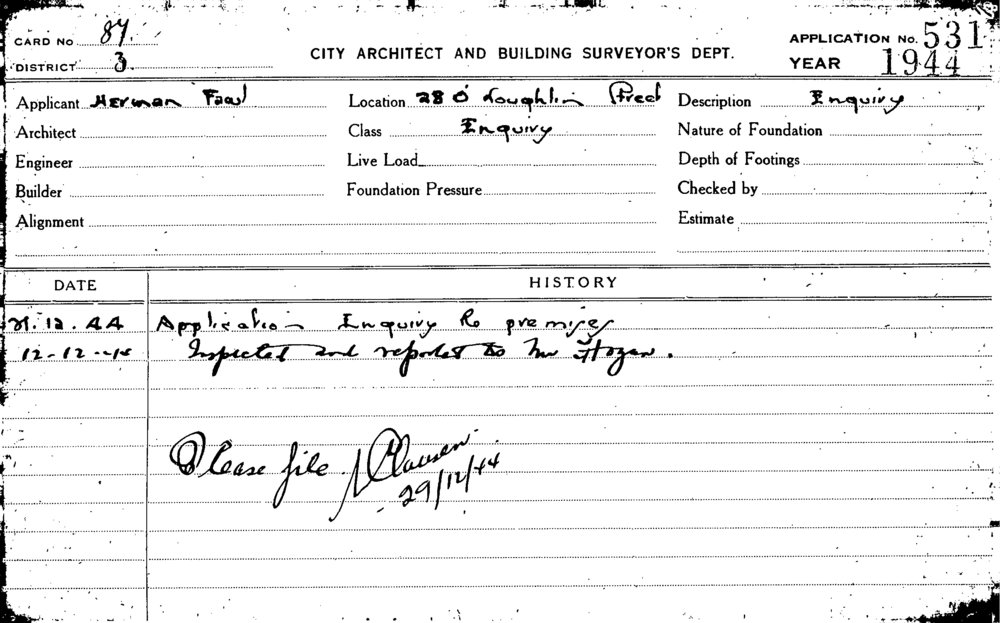 CARD No 87.
DISTRICT 3.
CITY ARCHITECT AND BUILDING SURVEYOR'S DEPT.
APPLICATION No. 531
YEAR 1944
Applicant Herman Location 28 O'Loughlin Street Description Enquiry
Architect Class Enquiry Nature of Foundation
Engineer Live Load Depth of Footings
Builder Foundation Pressure Checked by
Alignment Estimate
DATE HISTORY
.12.44 Application Enquiry Re premises
12-12- Inspected and reported to Mr Hogan.
Please file
29/12/44